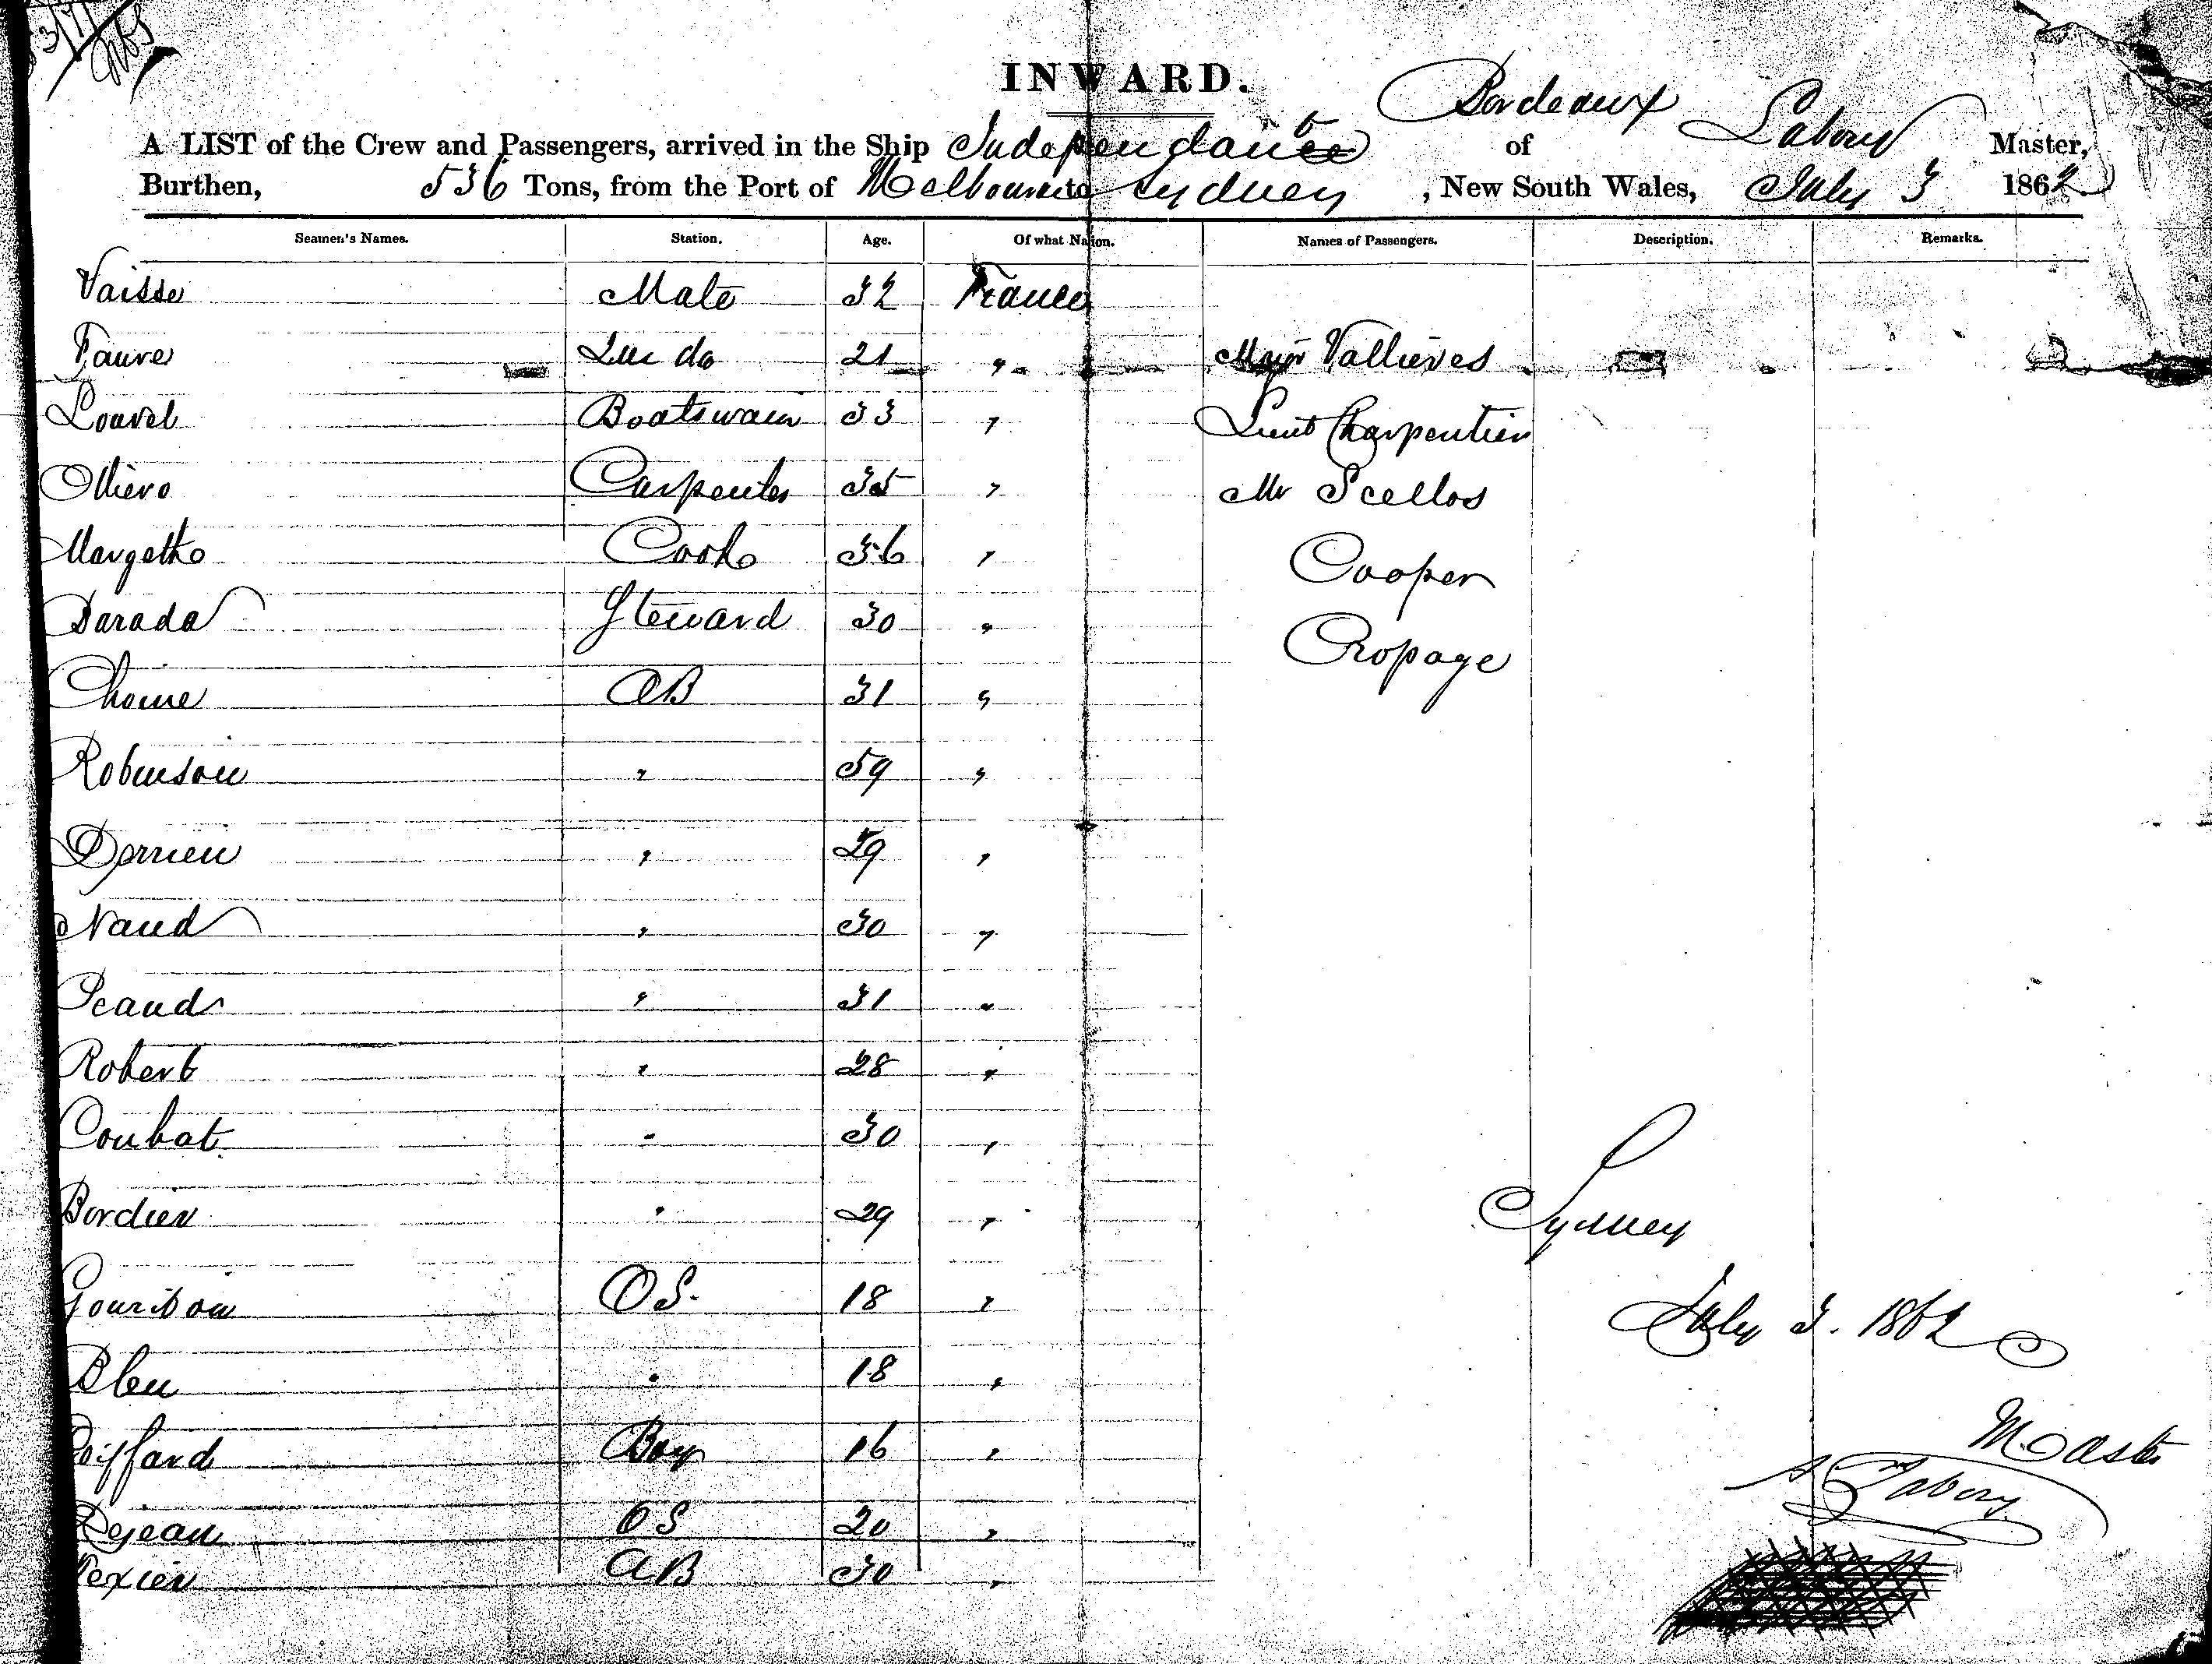 INWARD.
A LIST of the Crew and Passengers, arrived in the Ship Independante of Bordeaux Labory Master,
Burthen, 536 Tons, from the Port of Melbourne to Sydney, New South Wales, July 3 1862
Seamen's Names. Station. Age. Of what Nation. Names of Passengers. Description. Remarks.
Vaisse Mate 32 France
Faure 21 " Major Vallieres
Louvel Boatswain 33 " Lieut Charpentier
Olliero Carpenter 35 " Mr Scellos
Cook 36 " Cooper
Darada Steward 30 " Cropage
AB 31 "
Robinson " 59 "
Derrien " 29 "
Naud " 30 "
" 31 "
Robert " 28 "
Coubat " 30 "
Bordier " 29 "
OS. 18 "
Bleu " 18 "
Boy 16 "
Dejean OS 20 "
Texier AB 30 "
Sydney
July 3. 1862
Master
Labory